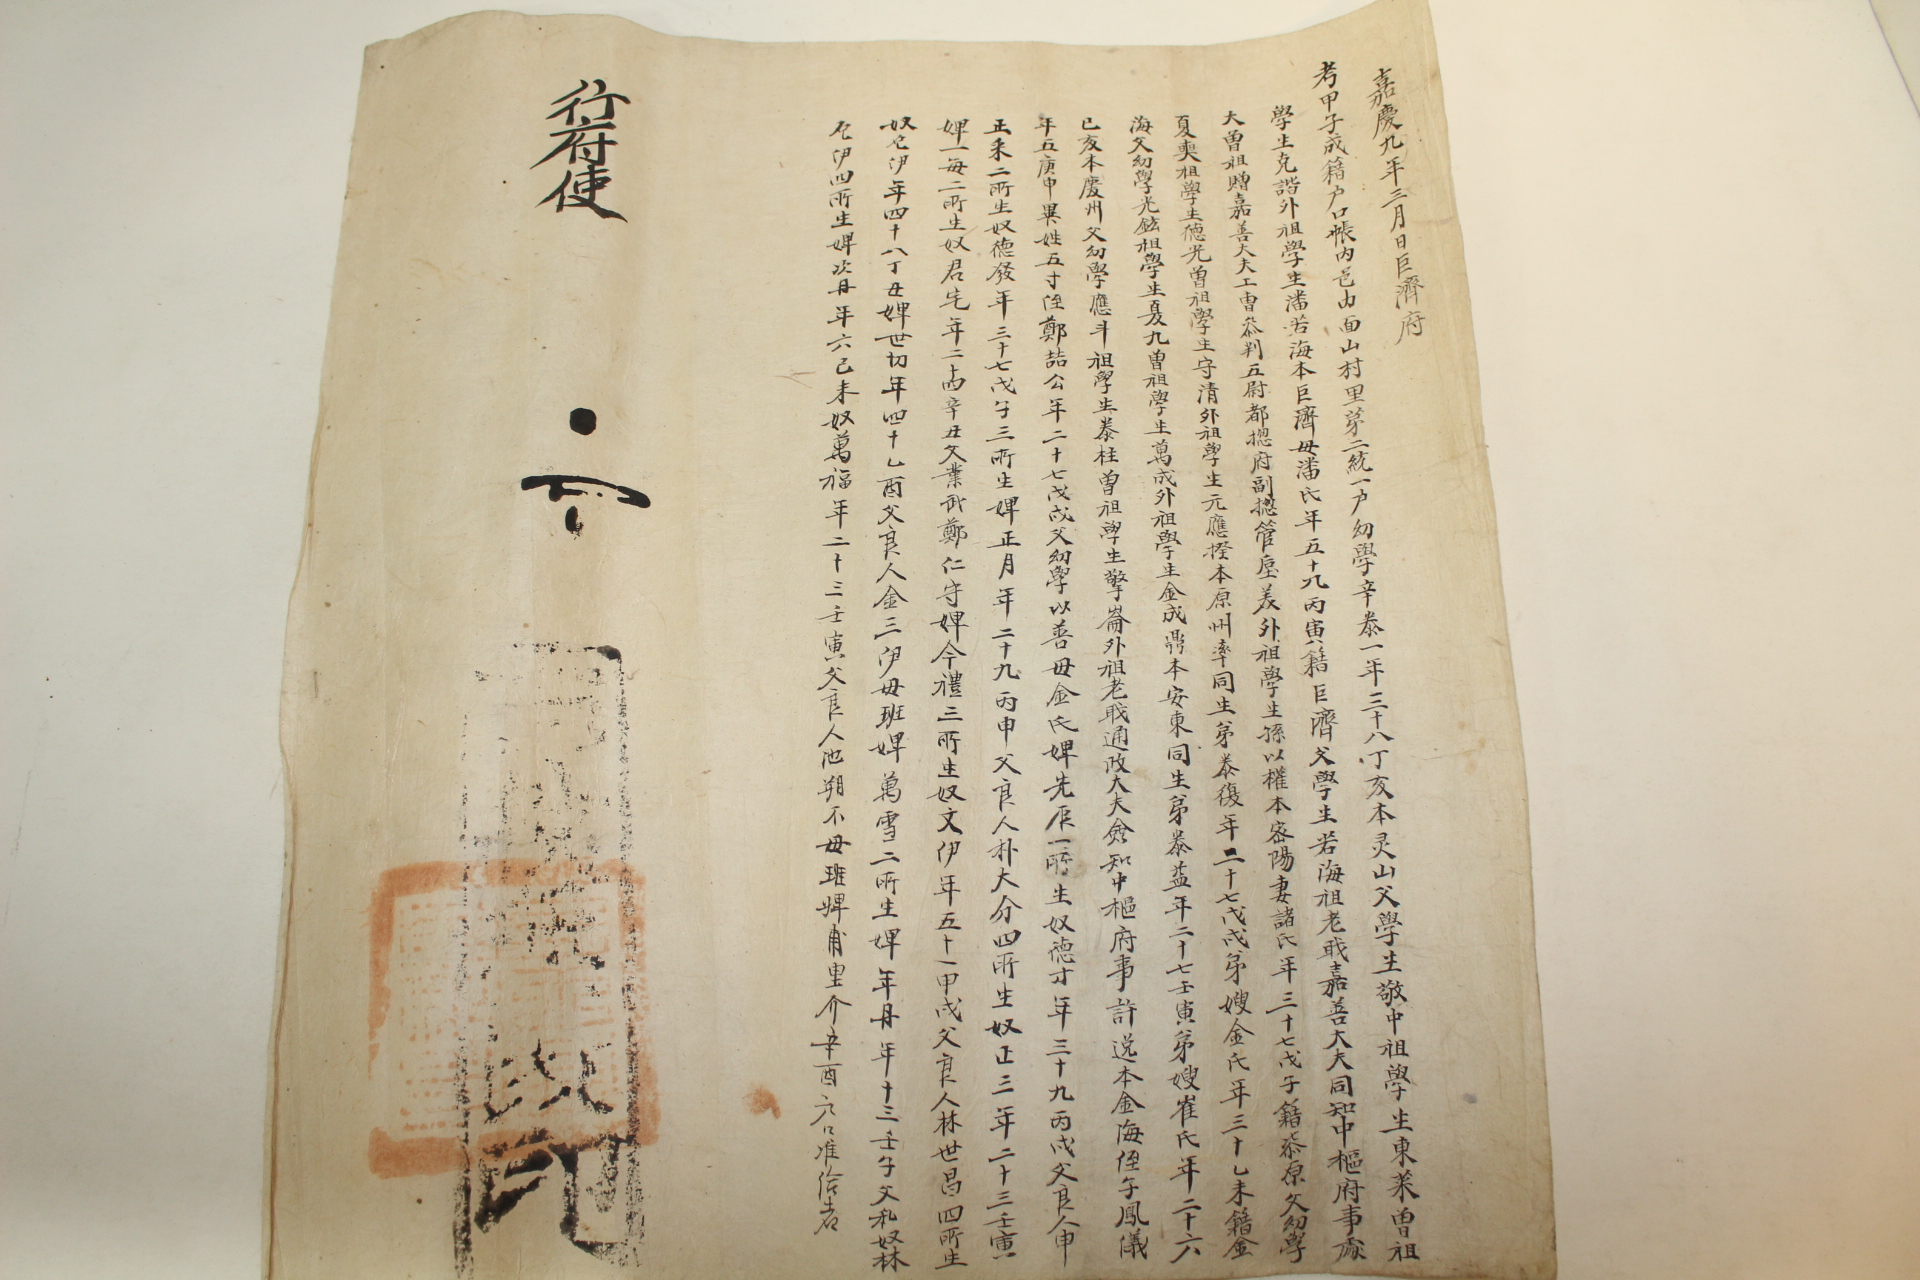 嘉慶九年三月日巨濟府
考甲子成籍户口帳内邑內面山村里第二統一户幼學辛泰一年三十八丁亥本灵山父學生敬中祖學生東萊曾祖
學生克諧外祖學生潘若海本巨濟母潘氏年五十九丙寅籍巨濟父學生若海祖老職嘉善大夫同知中樞府事
大曾祖贈嘉善大夫工曹叅判五尉都摠府副摠管 美外祖學生孫以權本密陽妻諸氏年三十七戊子籍柒原父幼學
夏奭祖學生德光曾祖學生守清外祖學生元應 本原州率同生弟泰復年二十七戊戌弟嫂金氏年三十乙未籍金
海父幼學光鉉祖學生夏九曾祖學生萬成外祖學生金成鼎本安東同生弟泰益年二十七壬寅弟嫂崔氏年二十六
己亥本慶州父幼學應斗祖學生泰柱曾祖學生擎崙外祖老職通政大夫僉知中樞府事許逸本金海侄子鳳儀
年五庚申異姓五寸侄鄭喆公年二十七戊戌父幼學以善母金氏婢先 一所生奴德才年三十九丙戌父良人申
正采二所生奴德發年三十七戊子三所生婢正月年二十九丙申父良人朴大分四所生奴正三年二十三壬寅
婢一每二所生奴君 年二十四辛丑父業武鄭仁守婢今禮三所生奴文伊年五十一甲戌父良人林世昌四所生
奴 伊年四十八丁丑婢世切年四十乙酉父良人金三伊母班婢萬雪二所生婢年丹年十三壬子父私奴林
 伊四所生婢次丹年六己未奴萬福年二十三壬寅父良人池朔不母班婢甫里介辛酉户口准給者
行府使
印